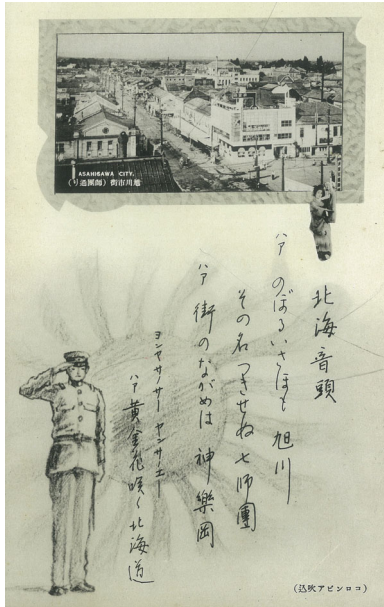 ASAHIGAWA CITY.
(り通團師) 街市川旭
北海音頭
ハア のぼるいさほも 旭川
その名 つきせぬ 七師團
ハア 街のながめは 神樂岡
ヨンヤサノサー ヤンサノエー
ハア 黄金花咲く北海道
(込吹アビンロコ)